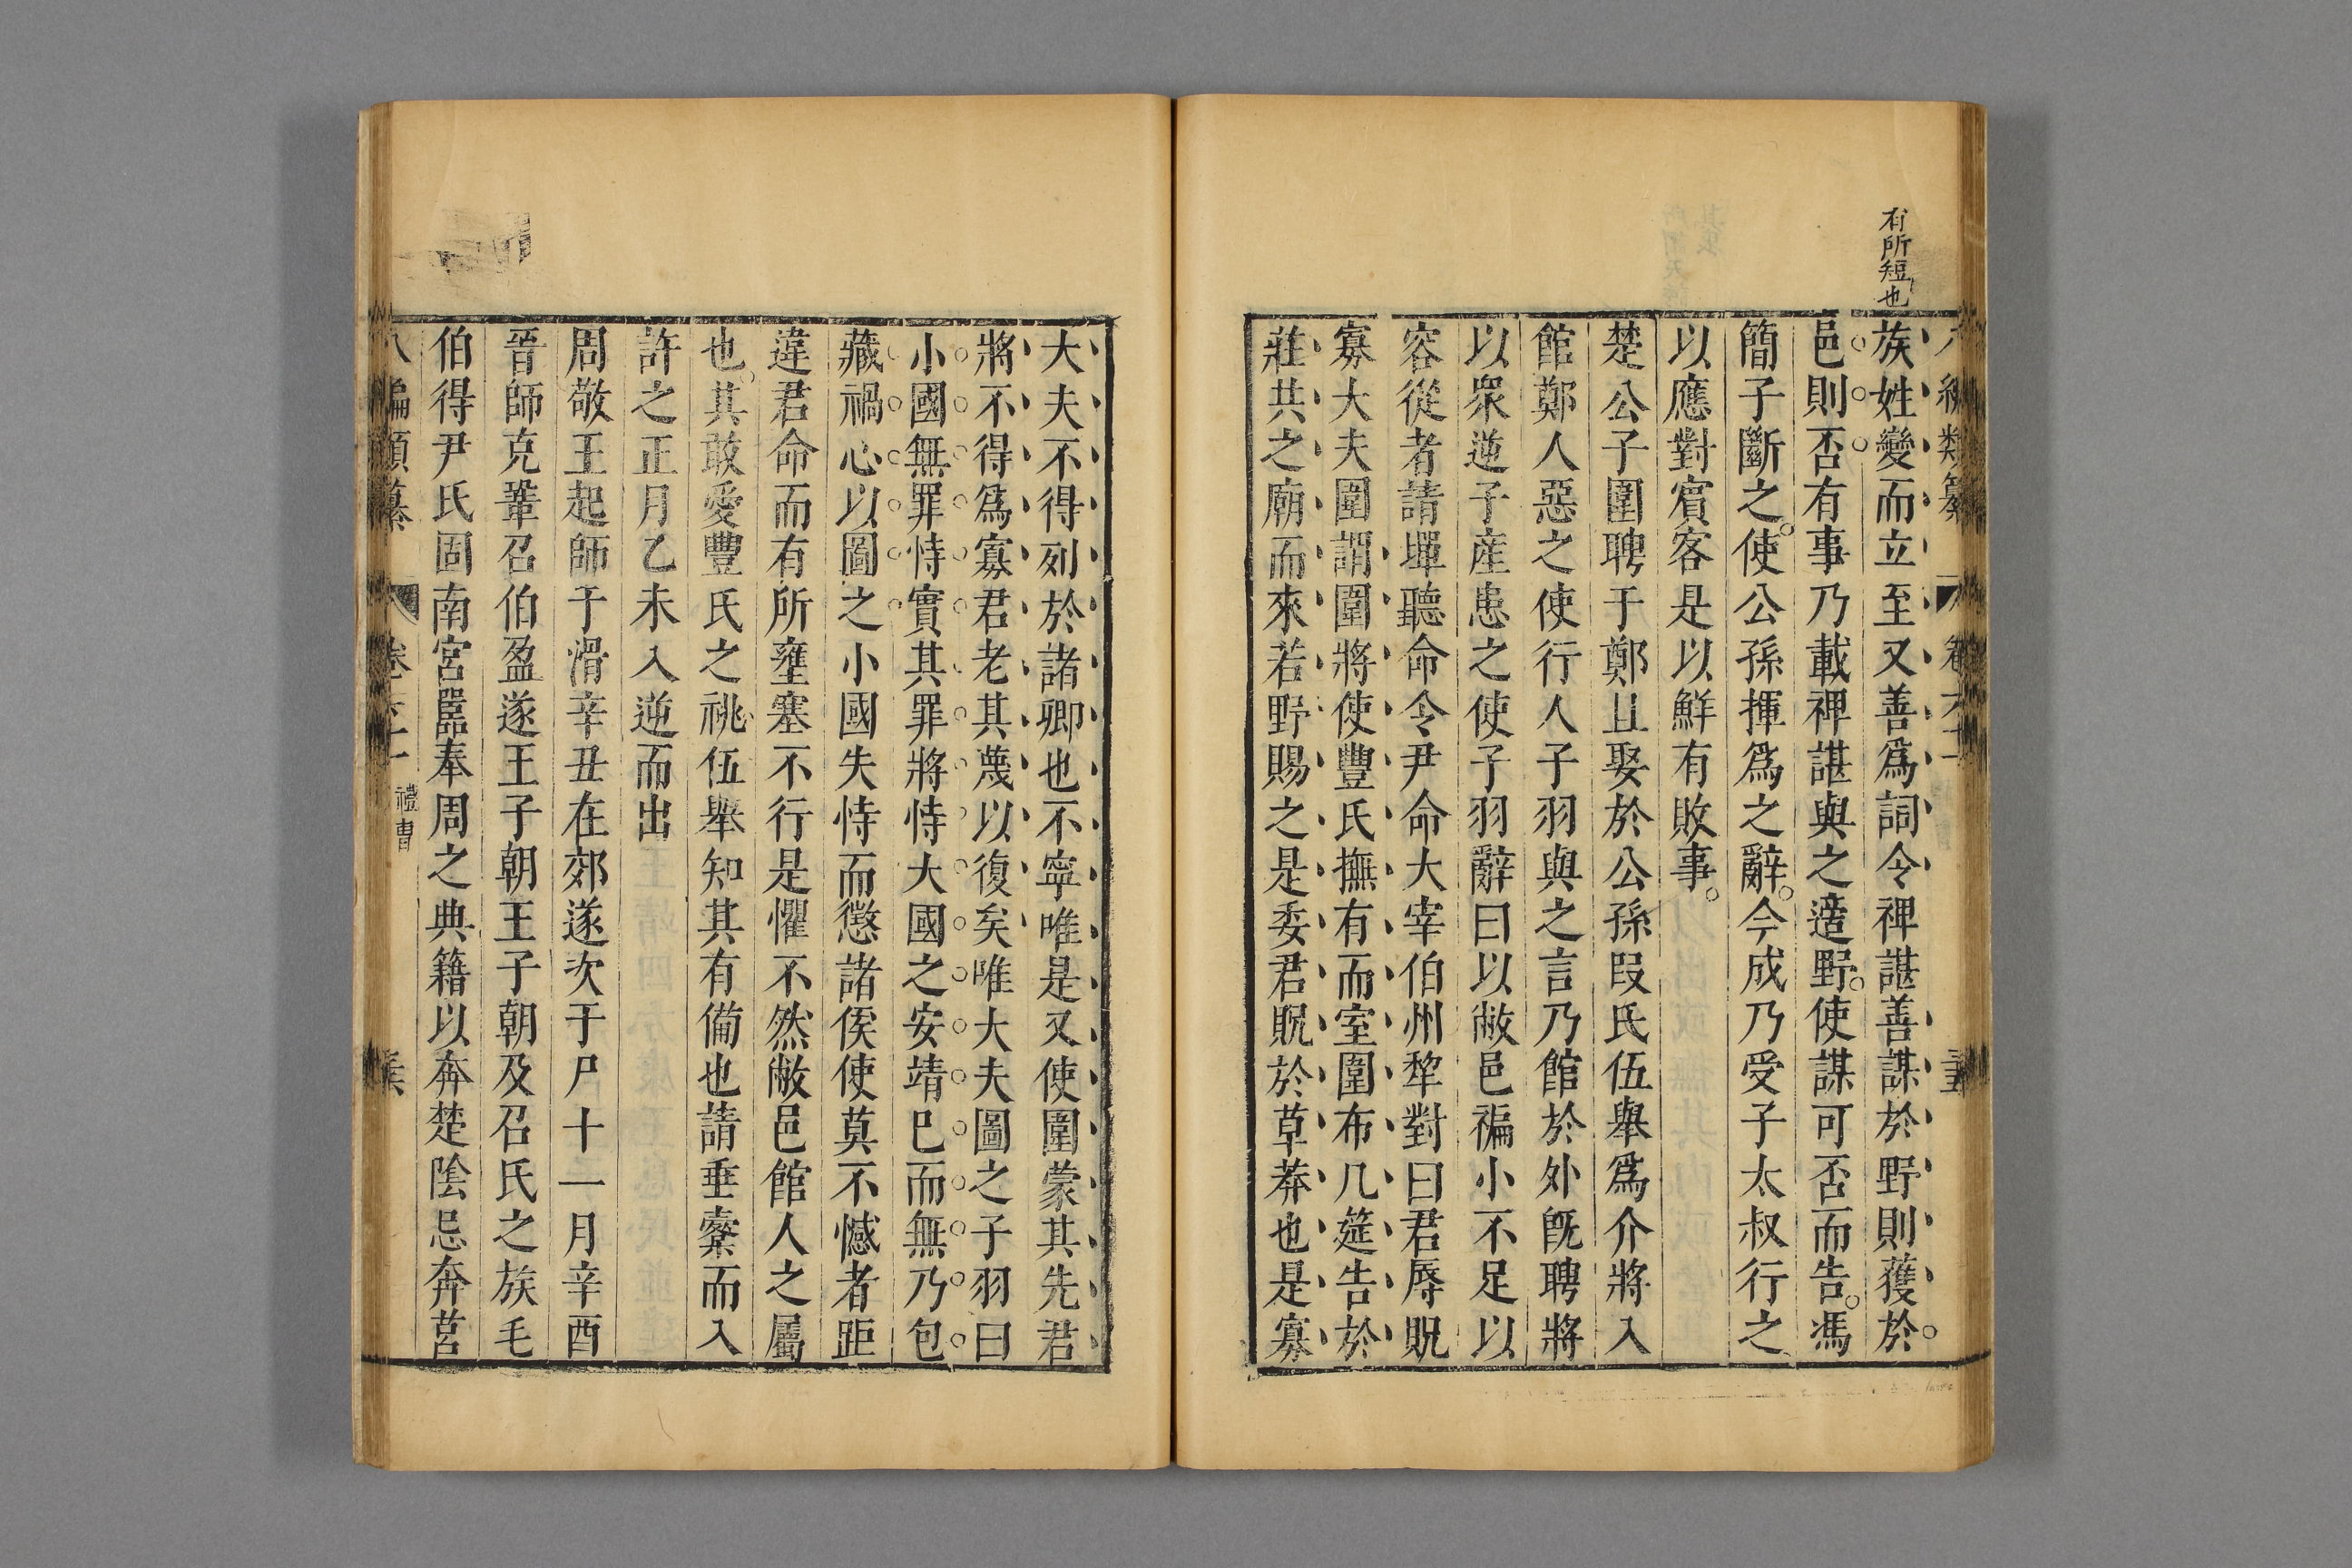 有所短也
族姓變而立至又善爲詞令裨諶善謀於野則獲於
邑則否有事乃載裨諶與之適野使謀可否而告馮
簡子斷之使公孫揮爲之辭今成乃受子太叔行之
以應對賓客是以鮮有敗事
楚公子圍聘于鄭且娶於公孫段氏伍舉爲介將入
館鄭人惡之使行人子羽與之言乃館於外旣聘將
以衆逆子產患之使子羽辭曰以敝邑褊小不足以
容從者請墠聽命令尹命大宰伯州犂對曰君辱貺
寡大夫圍謂圍將使豐氏撫有而室圍布几筵告於
莊共之廟而來若野賜之是委君貺於草莽也是寡
大夫不得列於諸卿也不寧唯是又使圍蒙其先君
將不得爲寡君老其蔑以復矣唯大夫圖之子羽曰
小國無罪恃實其罪將恃大國之安靖巳而無乃包
藏禍心以圖之小國失恃而懲諸侯使莫不憾者距
違君命而有所壅塞不行是懼不然敝邑館人之屬
也其敢愛豐氏之祧伍舉知其有備也請垂櫜而入
許之正月乙未入逆而出
周敬王起師于滑辛丑在郊遂次于尸十一月辛酉
晉師克鞏召伯盈遂王子朝王子朝及召氏之族毛
伯得尹氏固南宮嚚奉周之典籍以奔楚陰忌奔莒
八編類纂 卷 禮曹